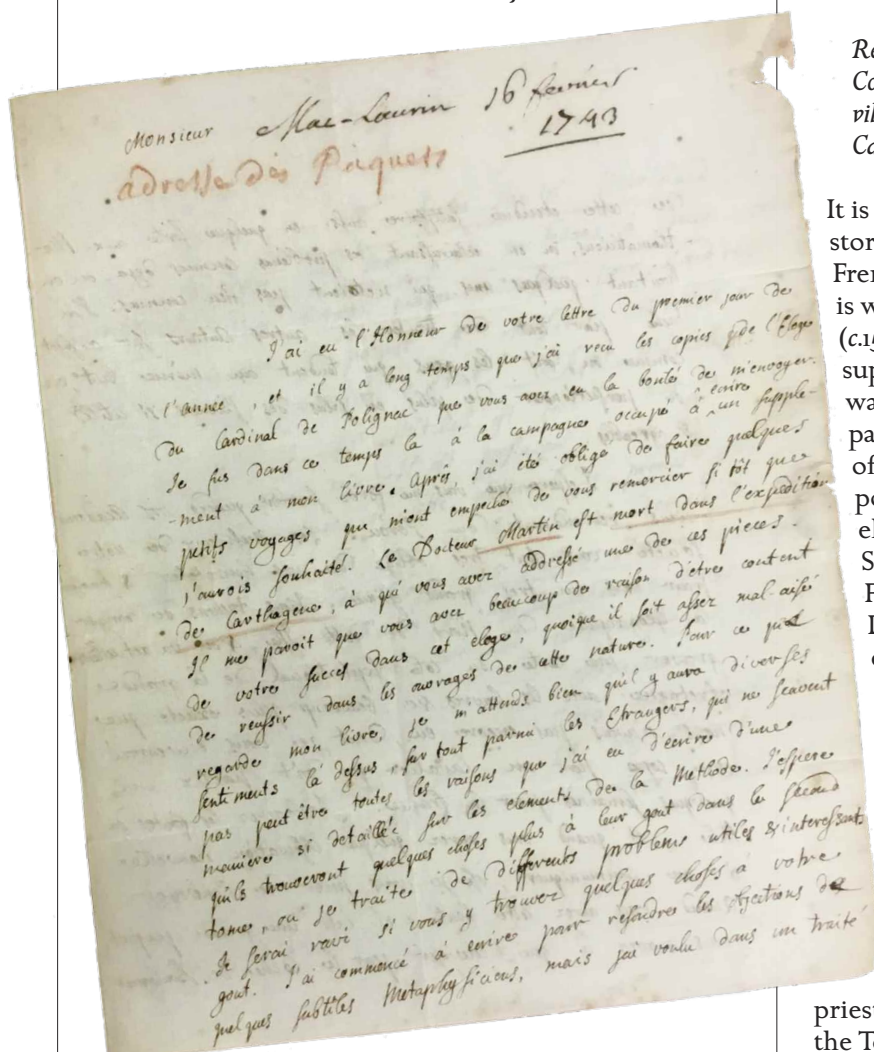 Monsieur Mac-Laurin 16 fevrier
1743
adresse des Paquets
J'ai eu l'Honneur de votre lettre du premier jour de
l'année, et il y a long temps que j'ai recu les copies de l'Eloge
du Cardinal de Polignac que vous avez eu la bonté de m'envoyer.
Je fus dans ce temps la à la campagne occupé à ecrire un supple-
-ment à mon livre. Après, j'ai été oblige de faire quelques
petits voyages qui m'ont empeché de vous remercier si tôt que
j'aurois souhaité. Le Docteur Martin est mort dans l'expedition
de Carthagene, à qui vous avez addressé une de ces pieces.
Il me paroit que vous avez beaucoup de raison d'etre content
de votre succes dans cet eloge, quoique il soit assez mal aisé
de reussir dans les ouvrages de cette nature. Pour ce qui
regarde mon livre, je m'attends bien qu'il y aura diverses
sentiments là dessus, sur tout parmi les Etrangers, qui ne scavent
pas peut être toutes les raisons que j'ai eu d'ecrire d'une
maniere si detaillée sur les elements de la Methode. J'espere
qu'ils trouveront quelques choses plus à leur gout dans le second
tome, ou je traite de differents problems utiles & interessants
Je serai ravi si vous y trouvez quelques choses à votre
gout. J'ai commencé à ecrire pour resoudre les objections de
quelques subtiles Metaphysiciens, mais j'ai voulu dans un traité
It is
is w
(c.15
sup
wa
pa
of
po
el
S
F
priest
the To